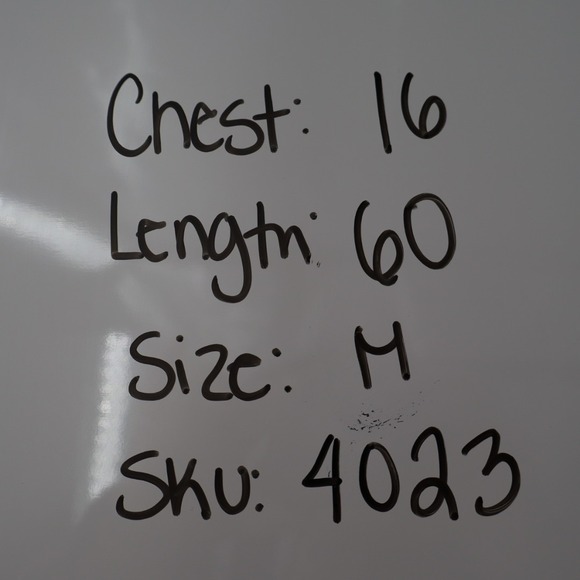 Chest: 16
Length: 60
Size: M
SKU: 4023